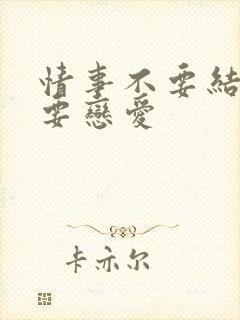 情事不要結
要戀愛
卡亦尔